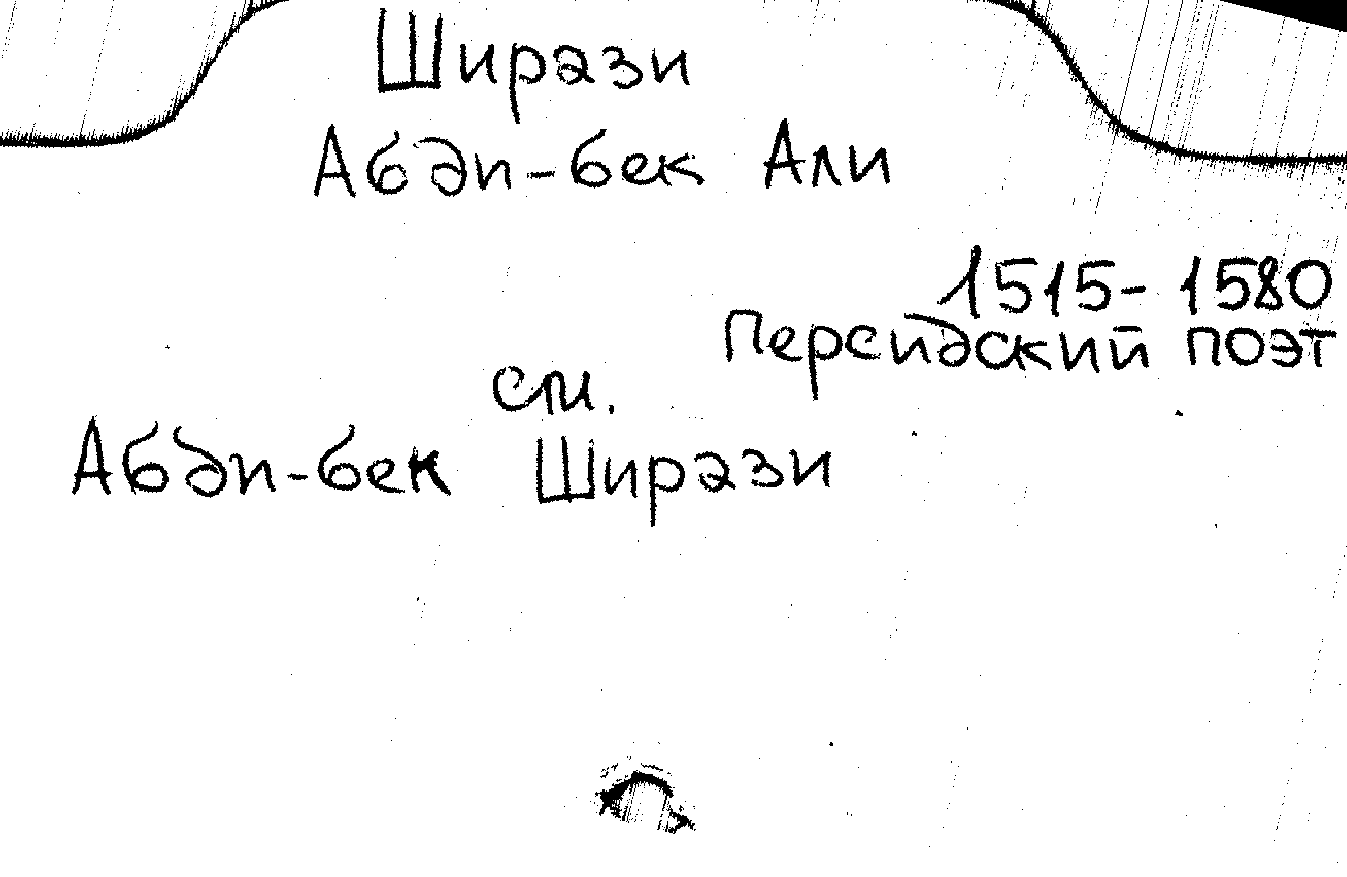 Ширази
Абди-бек Али
1515-1580
персидский поэт
см.
Абди-бек Ширази